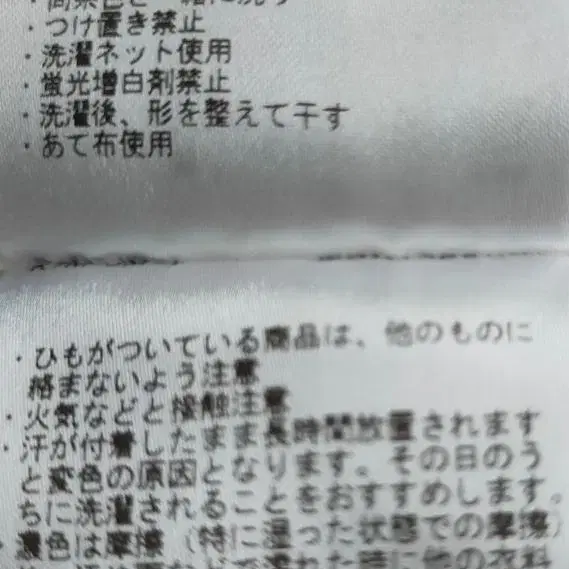 ・同系色と一緒に洗う
・つけ置き禁止
・洗濯ネット使用
・蛍光増白剤禁止
・洗濯後、形を整えて干す
・あて布使用
・ひもがついている商品は、他のものに
絡まないよう注意
・火気などと接触注意
・汗が付着したまま長時間放置されます
と変色の原因となります。その日のう
ちに洗濯されることをおすすめします。
・濃色は摩擦（特に湿った状態での摩擦）
濡れた時に他の衣料